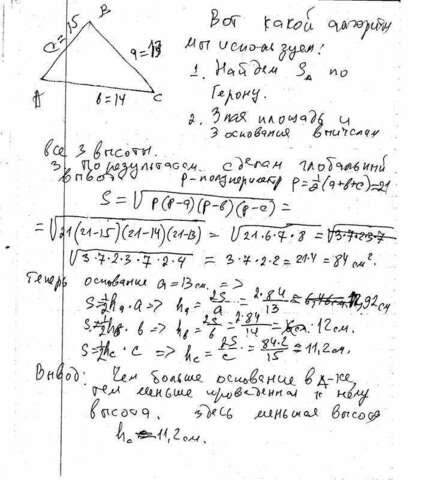 B
c=15
a=13
A
b=14
C
Вот какой алгоритм
мы используем:
1. Найдем S△ по
Герону.
2. Зная площадь и
3 основания вычислим
все 3 высоты.
3. По результатам сделаем глобальный
вывод
p-полупериметр p=½(a+b+c)=21
S=√p(p-a)(p-b)(p-c) =
=√21(21-15)(21-14)(21-13) = √21·6·7·8 = √3·7·2·3·7
√3·7·2·3·7·2·4 = 3·7·2·2=21·4=84 см².
Теперь основание a=13 см. =>
S=½hₐ·a => hₐ=2S/a=2·84/13≈12,92 см
S=½h_b·b => h_b=2S/b=2·84/14=12 см.
S=½h_c·c => h_c=2S/c=84·2/15=11,2 см.
Вывод: Чем больше основание в △-ке,
тем меньше проведенная к нему
высота. Здесь меньшая высота
h_c=11,2 см.